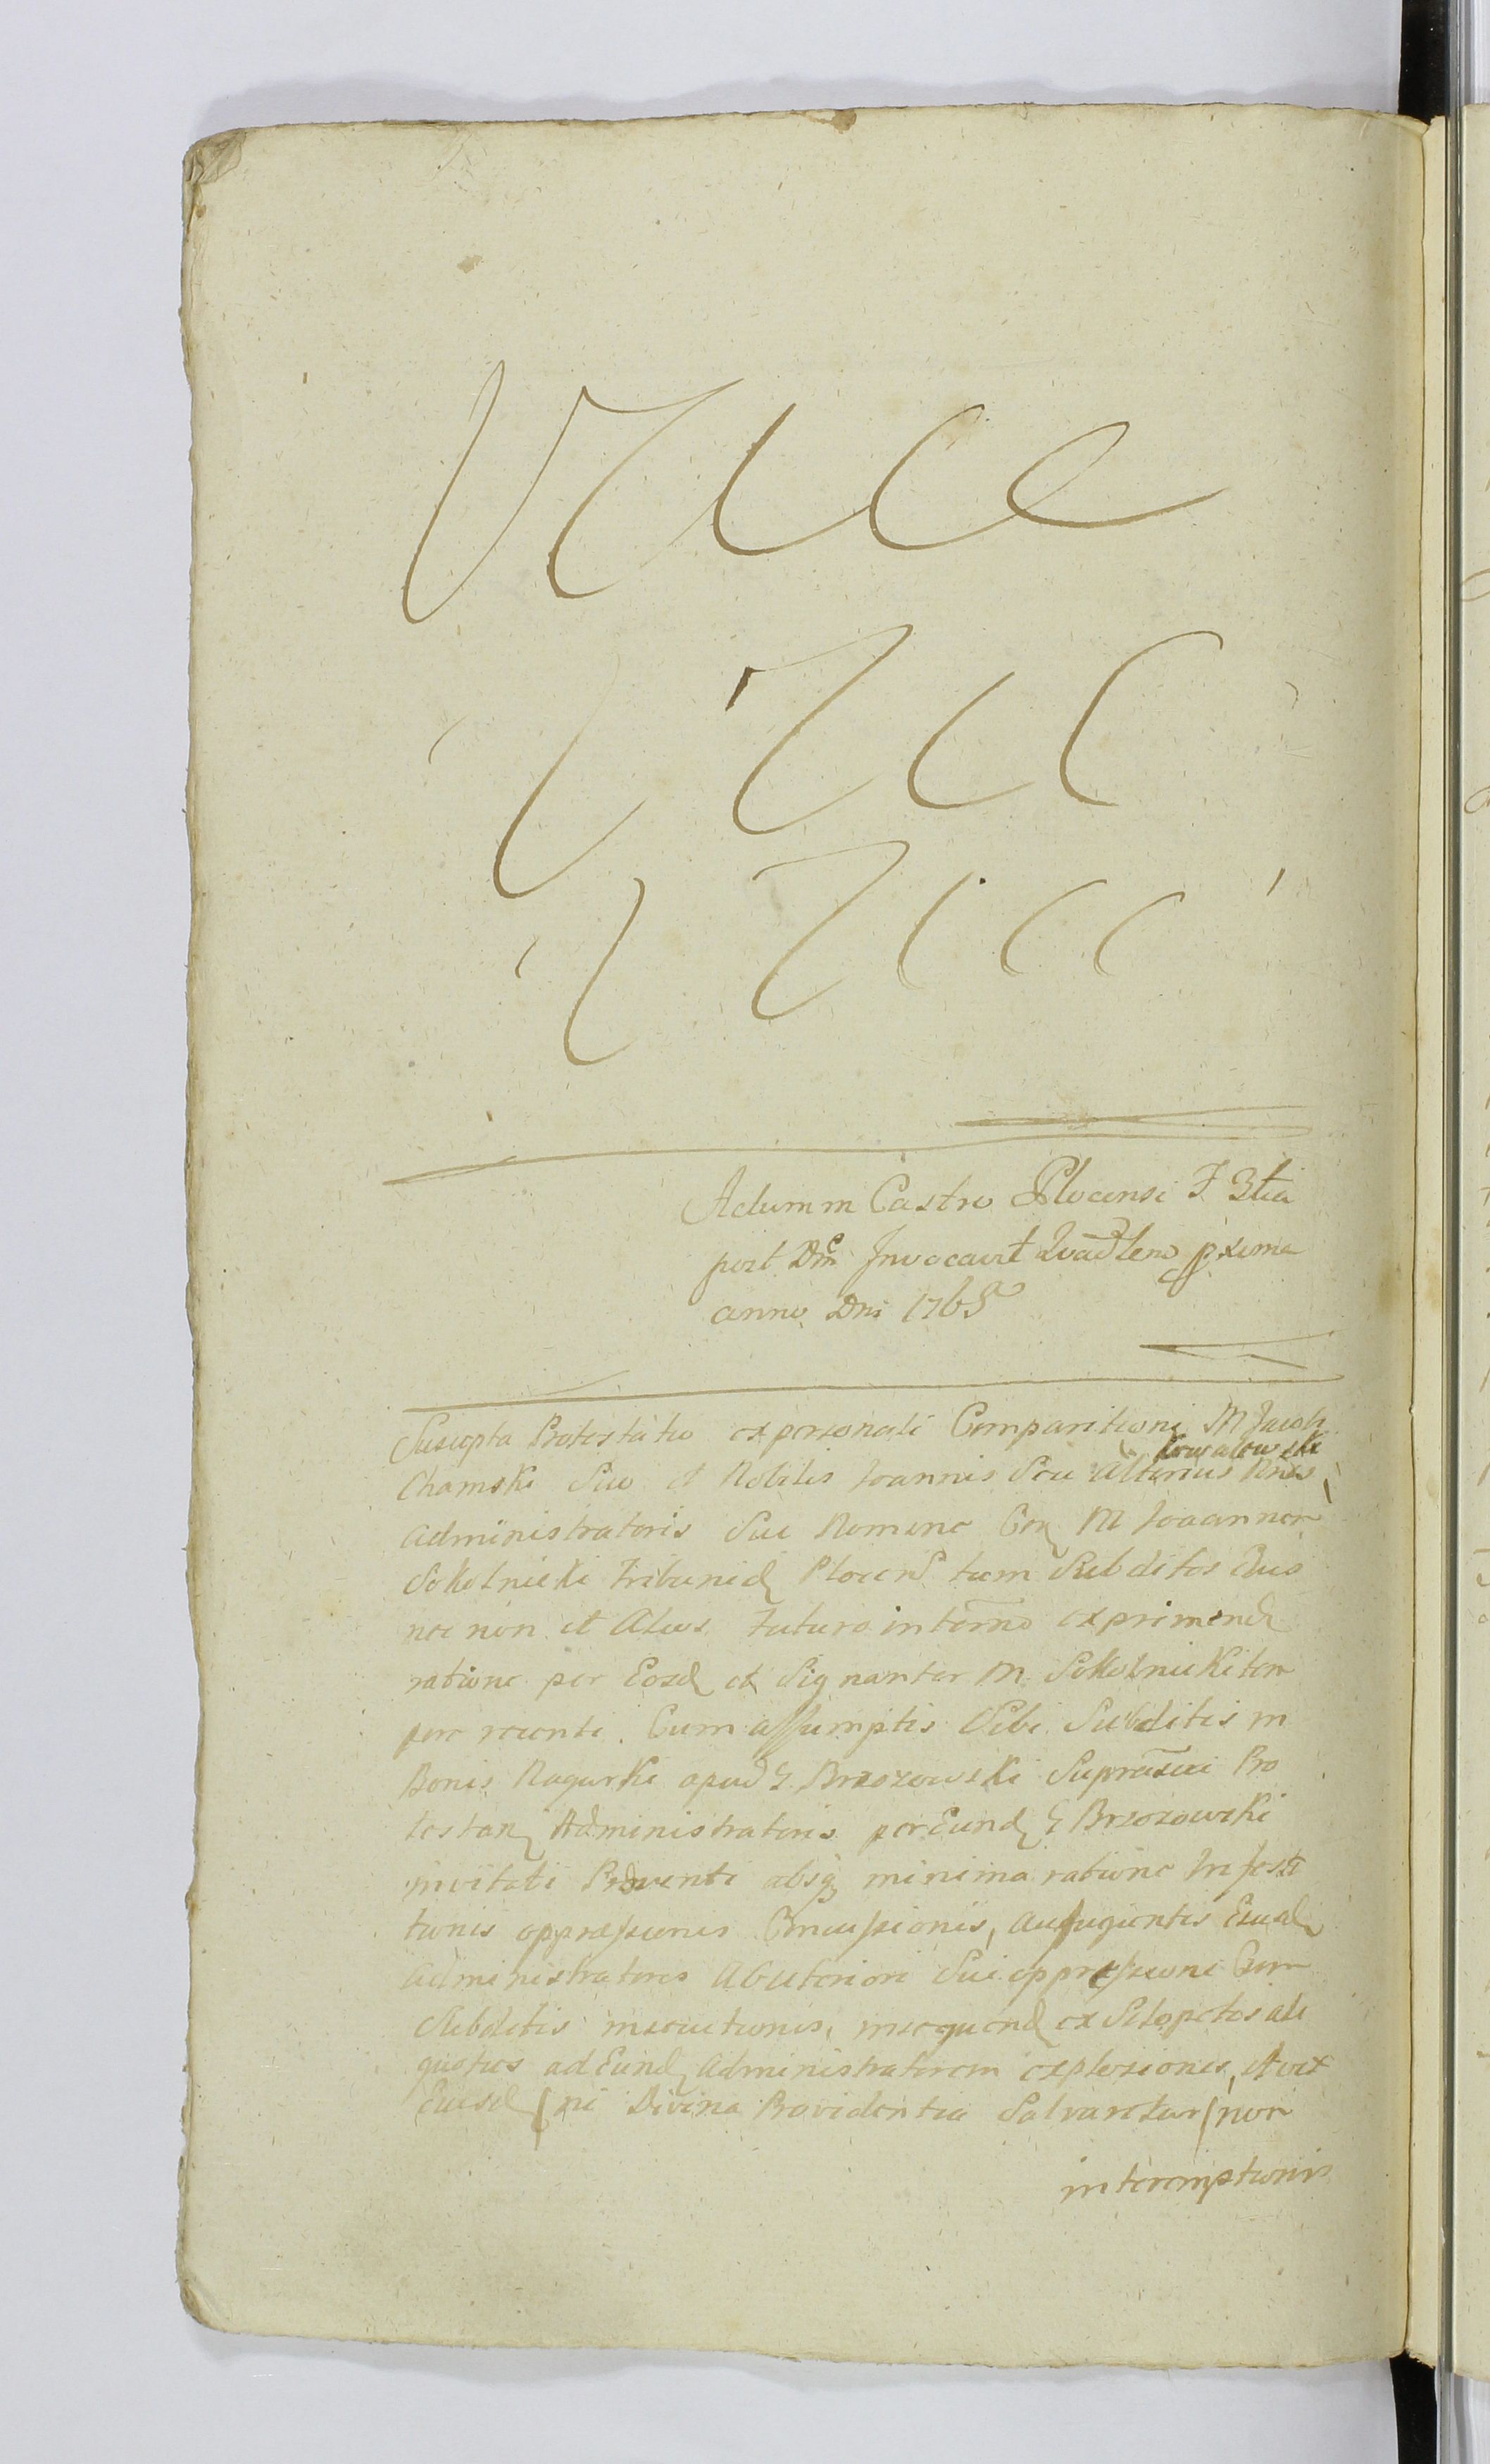 Actum in Castro Plocensi F. 3tia
post Dm̃ Invocavit Quad̃lem pxima
anno Dni 1765
Suscepta Protestatio ex personali Comparitione M Jacob
Kowalewski
Chamski Suo et Nobilis Joannis Seu Alterius Nñis
Administratoris Sui Nomine Con M Joannem
Sokolnicki Tribunid Plocens tum Subditos Eius
nec non et Alios futuro in termo exprimend
ratione per Eosd et Signanter M. Sokolnicki tem
pore recenti. Cum assumptis Sibi Subditis in
Bonis Rogurki apud G. Brzozowski Suprascri Pro
testan Administratoris per Eund G Brzozowski
invitati Proventi absq minima ratione Infesta
tionis oppressionis Concussionis, aufugientis Eiusd
Administratoris Ab ulteriori Sui oppressione Cum
Subditis insecutionis, insequend ex Sclopetis ali
quoties ad Eund Administratorem explosionis, et vix
Eiusd (ni Divina Providentia Salvaretur) non
interemptionis